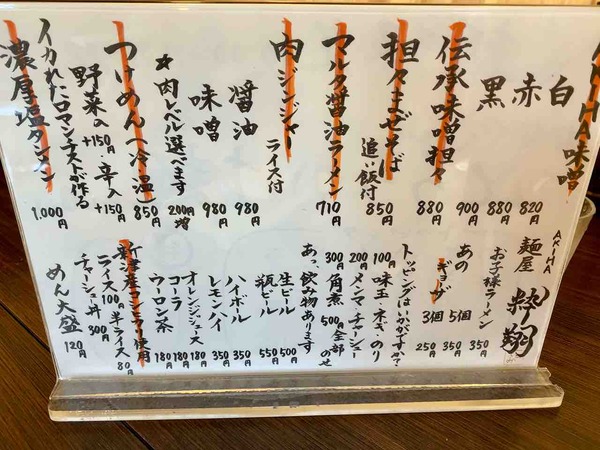 AKIHA味噌
白 820円
赤 880円
黒 900円
伝承味噌担々 880円
担々まぜそば 850円
追い飯付
マルタ醤油ラーメン 710円
肉ジンジャー
ライス付
醤油 980円
味噌 980円
★肉レベル選べます 200円増
つけめん(冷・温) 850円
野菜入+150円・辛入+150円
イカれたロマンチストが作る
濃厚塩タンメン 1,000円
AKIHA
麺屋
お子様ラーメン 350円
あの
ギョーザ
5個 350円
3個 250円
トッピングはいかがですか?
100円 味玉・ネギ・のり
200円 メンマ・チャーシュー
300円 角煮 500円 全部のせ
あっ、飲み物あります
生ビール 500円
瓶ビール 550円
ハイボール 350円
レモンハイ 350円
オレンジジュース 180円
コーラ 180円
ウーロン茶 180円
新潟産コシヒカリ使用
ライス100円 半ライス80円
チャーシュー丼 300円
めん大盛 120円